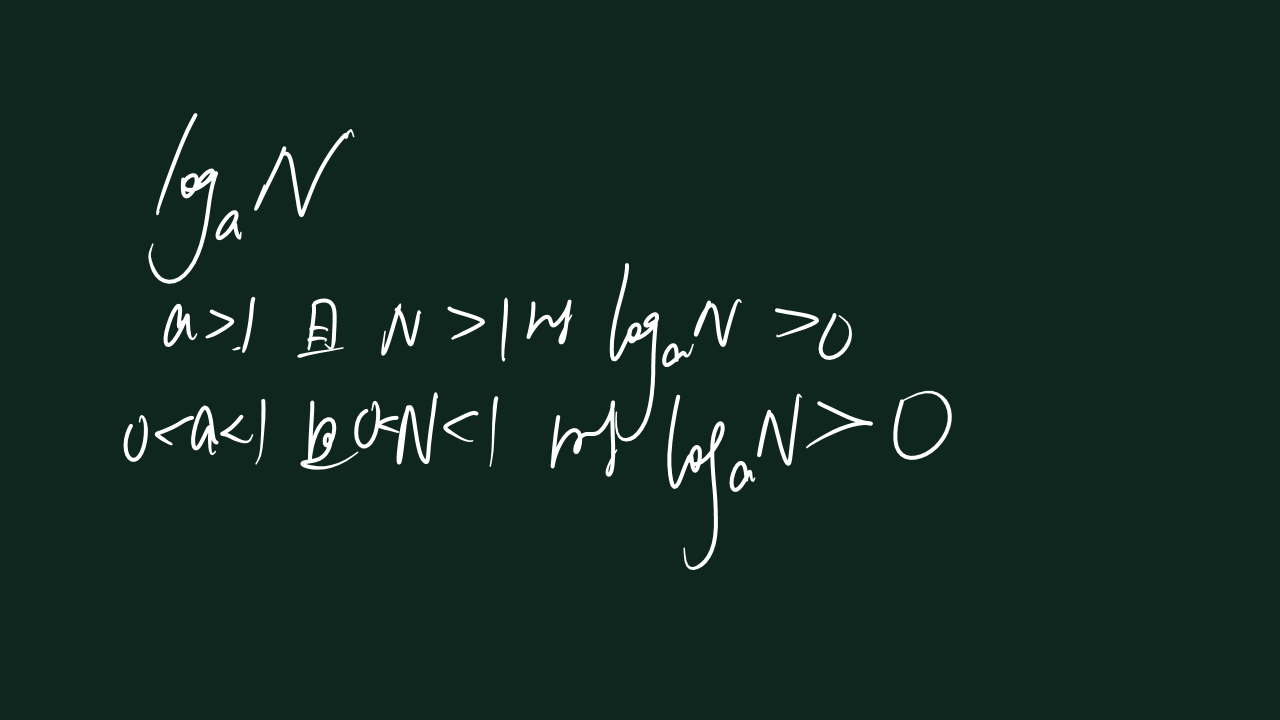 logₐN
a>1 且 N>1时 logₐN >0
0<a<1 且0<N<1 时 logₐN>0